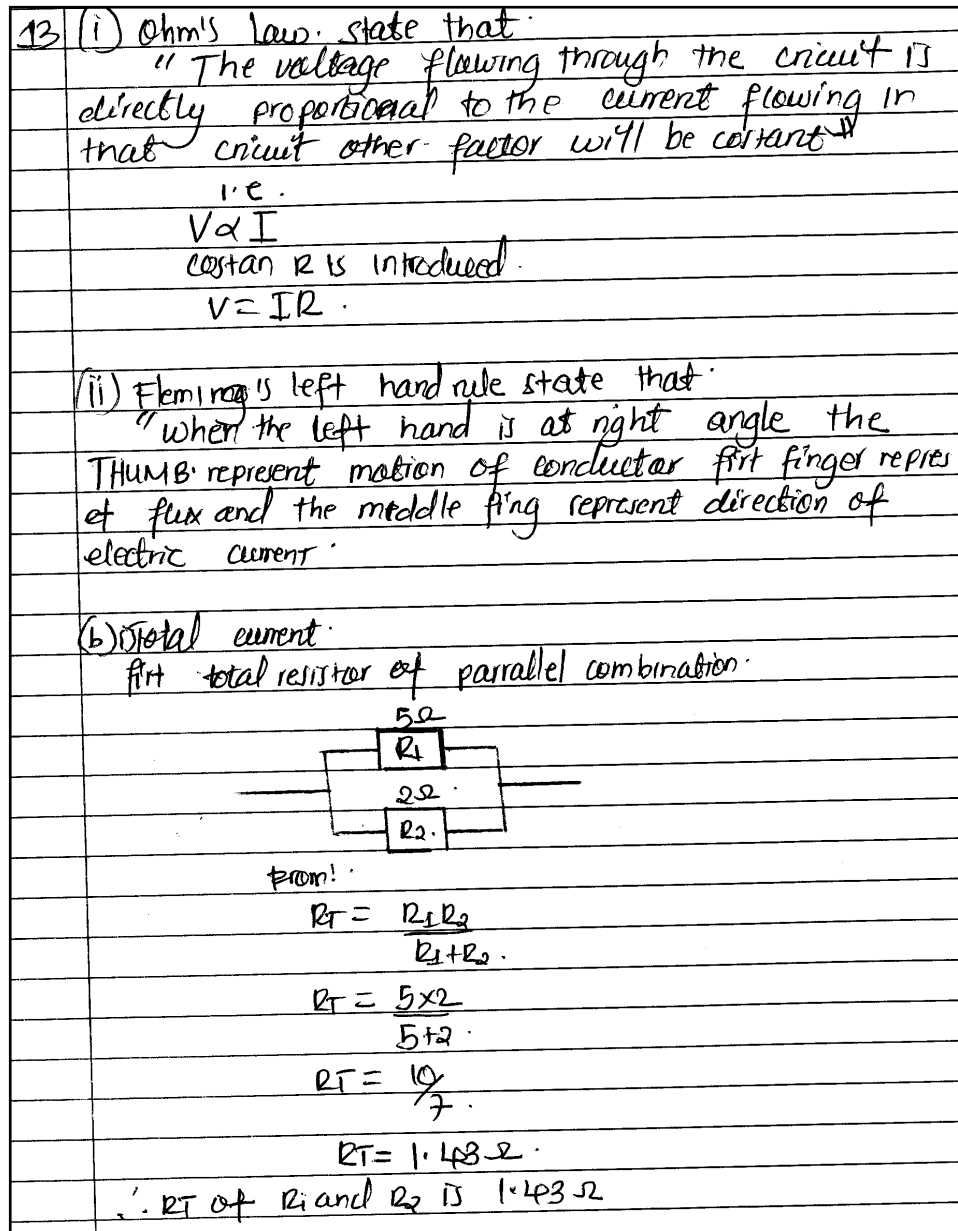 13 (i) Ohm's Law. state that.
" The valtage flowing through the cricuit is
directly proportional to the current flowing in
that cricuit other factor will be costant "
i.e.
V α I
costan R is introduced.
V = IR.
(ii) Fleming's left hand rule state that.
"when the left hand is at right angle the
THUMB. represent motion of conductor firt finger repres
et flux and the meddle fing represent direction of
electric current.
(b) i) Total current.
firt total resistor of parrallel combination.
5Ω
R1
2Ω.
R2.
From!.
RT = R1R2
R1+R2.
RT = 5x2
5+2.
RT = 10/7.
RT = 1.43Ω.
∴ RT of R1 and R2 is 1.43Ω